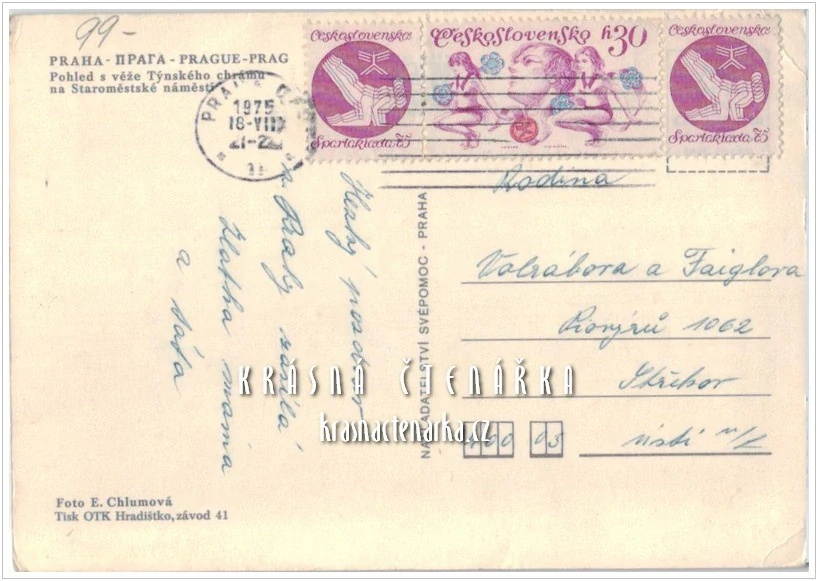 99-
PRAHA - ПРАГА - PRAGUE - PRAG
Pohled s věže Týnského chrámu
na Staroměstské náměstí
PRAHA
1975
18-VIII
21-22
Československo
Spartakiada 75
Československo h30
Československo
Spartakiada 75
Hezký pozdrav
z Prahy zasílá
Zlatka mama
a táta
NAKLADATELSTVÍ SVÉPOMOC - PRAHA
Rodina
Valrábora a Faiglova
Pionýrů 1062
Střekov
400 03 Ústí n/L
KRÁSNÁ ČTENÁŘKA
krasnactenarka.cz
Foto E. Chlumová
Tisk OTK Hradištko, závod 41